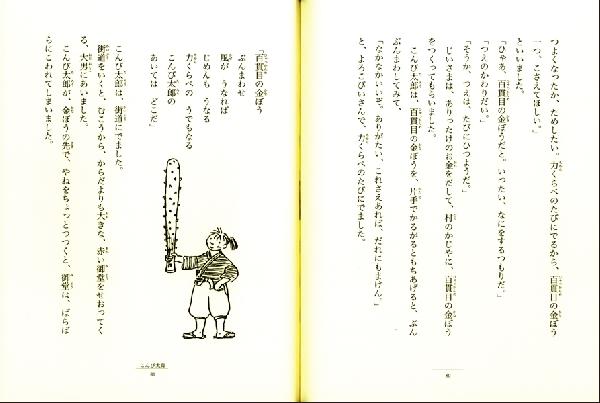 つよくなったか、ためしたい。力くらべのたびにでるから、百貫目の金ぼう
一つ、こさえてほしい。」
といいました。
「ひゃあ、百貫目の金ぼうだと。いったい、なにをするつもりだ。」
「つえのかわりだい。」
「そうか、つえは、たびにひつようだ。」
じいさまは、ありったけのお金をだして、村のかじやに、百貫目の金ぼう
をつくってもらいました。
こんび太郎は、百貫目の金ぼうを、片手でかるがるともちあげると、ぶん
ぶんまわしてみて、
「なかなかいいぞ。ありがたい、これさえあれば、だれにもまけん。」
と、よろこびいさんで、力くらべのたびにでました。
「百貫目の金ぼう
ぶんまわせ
風が うなれば
じめんも うなる
力くらべの うでもなる
こんび太郎の
あいては どこだ」
こんび太郎は、街道にでました。
街道をいくと、むこうから、からだよりも大きな、赤い御堂をせおってく
る、大男にあいました。
こんび太郎が、金ぼうの先で、やねをちょっとつつくと、御堂は、ばらば
らにこわれてしまいました。
こんび太郎